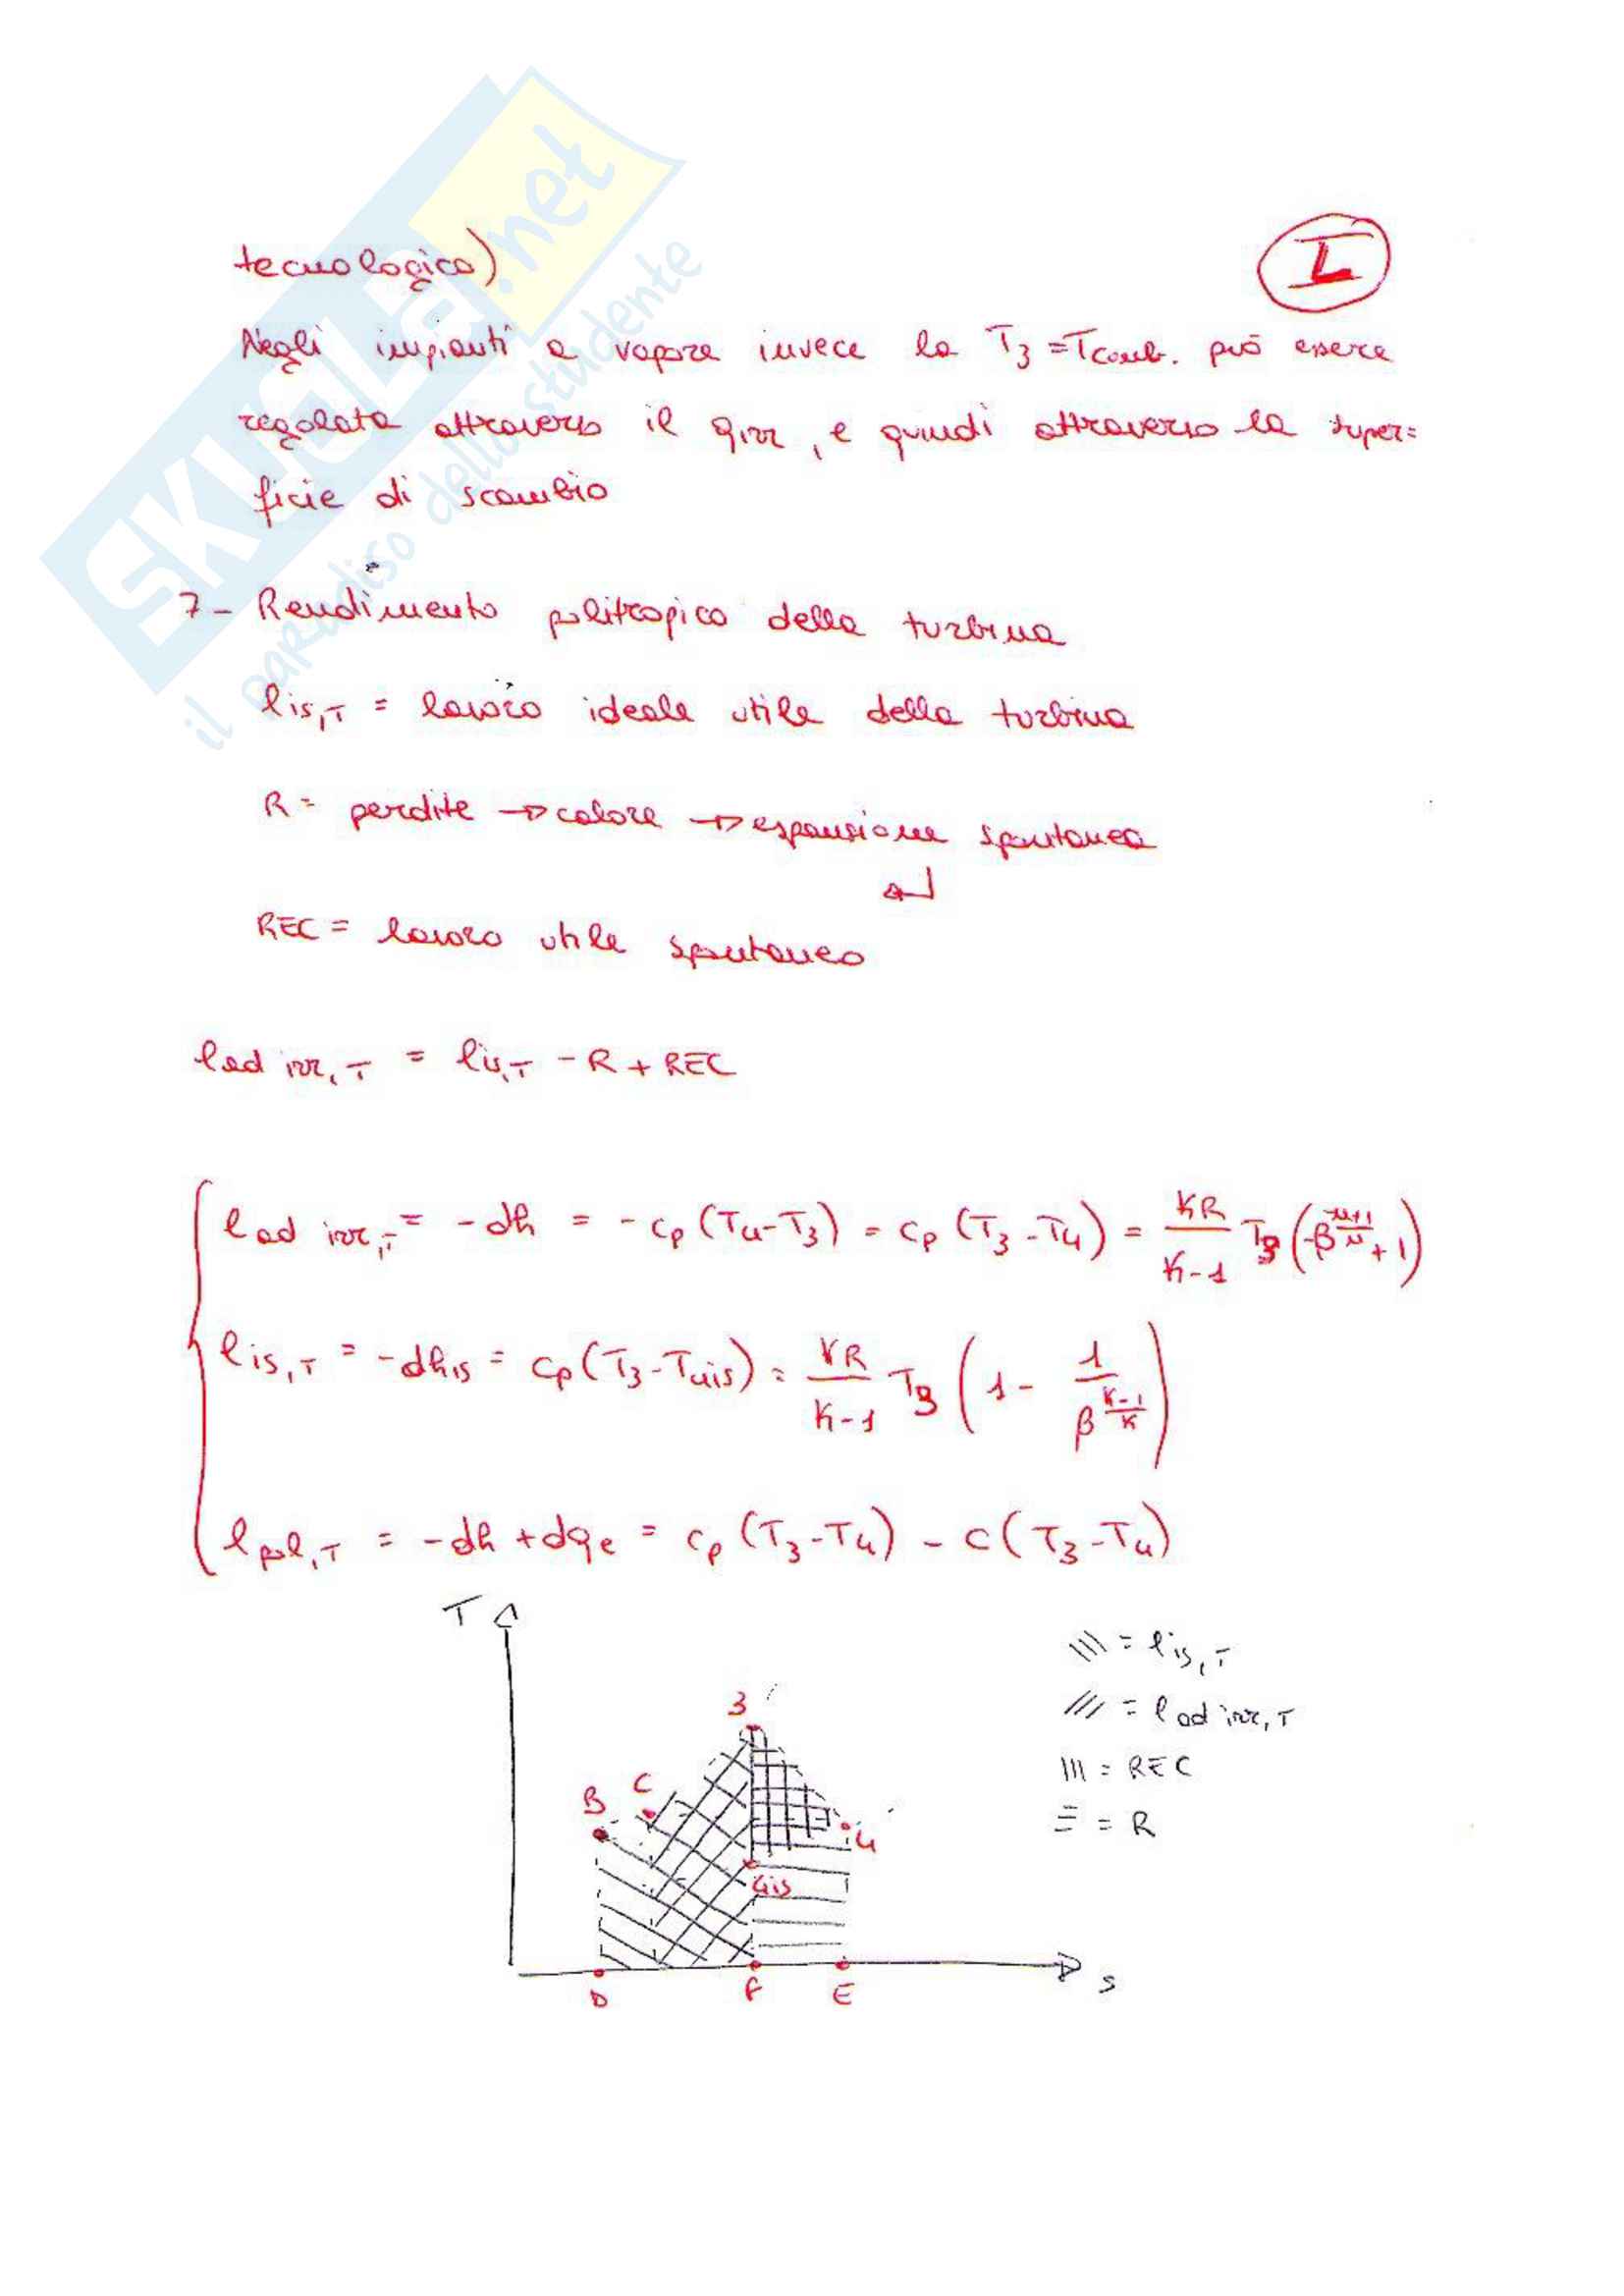 SKUOLA.net
il paradiso dello studente
tecnologico)
I
Negli impianti a vapore invece la T3 = Tcomb. può essere
regolata attraverso il qirr, e quindi attraverso la super=
ficie di scambio
7- Rendimento politropico della turbina
lis,T = lavoro ideale utile della turbina
R = perdite → calore → espansione spontanea
↲
REC = lavoro utile spontaneo
lad irr,T = lis,T - R + REC
lad irr,T = -dh = -cp (T4-T3) = cp (T3-T4) = KR/K-1 T3 (-β^(n+1/n) + 1)
lis,T = -dhis = cp (T3-T4is) = KR/K-1 T3 (1 - 1/β^(K-1/K))
lpol,T = -dh + dqe = cp (T3-T4) - c (T3-T4)
T
\\\ = lis,T
3
/// = lad irr,T
||| = REC
C
B
≡ = R
4
4is
s
D
F
E